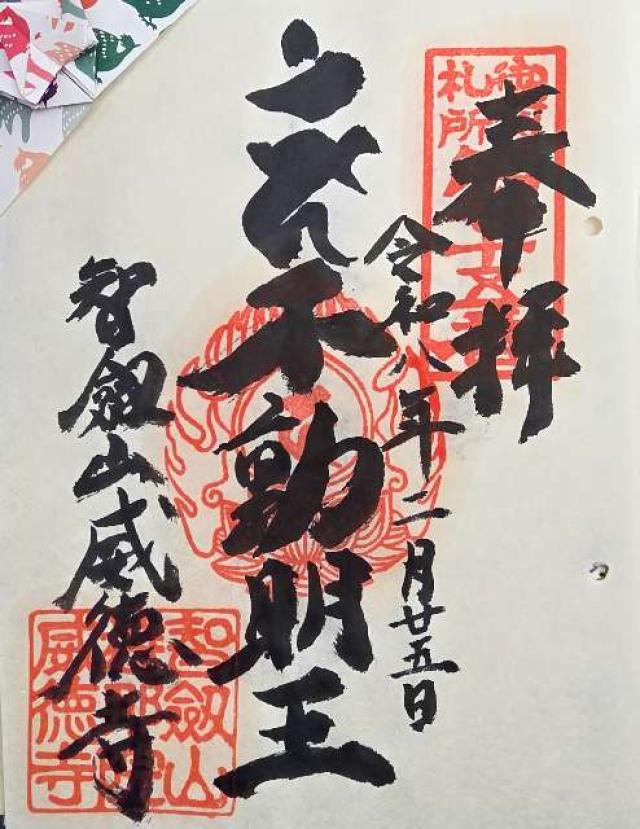 奉拝
令和八年二月廿五日
不動明王
智剱山威徳寺
札所
智剱山
威徳寺